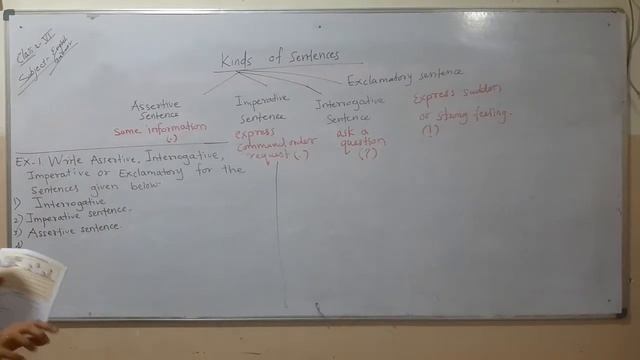 Class - VI
Subject - English
Kinds of Sentences
Assertive
Sentence
Some information
(.)
Imperative
Sentence
express
command order
request (.)
Interrogative
Sentence
ask a
question
(?)
Exclamatory sentence
express sudden
or strong feeling.
(!)
EX-1. Write Assertive, Interrogative,
Imperative or Exclamatory for the
Sentences given below
1) Interrogative
2) Imperative sentence.
3) Assertive sentence.
4)